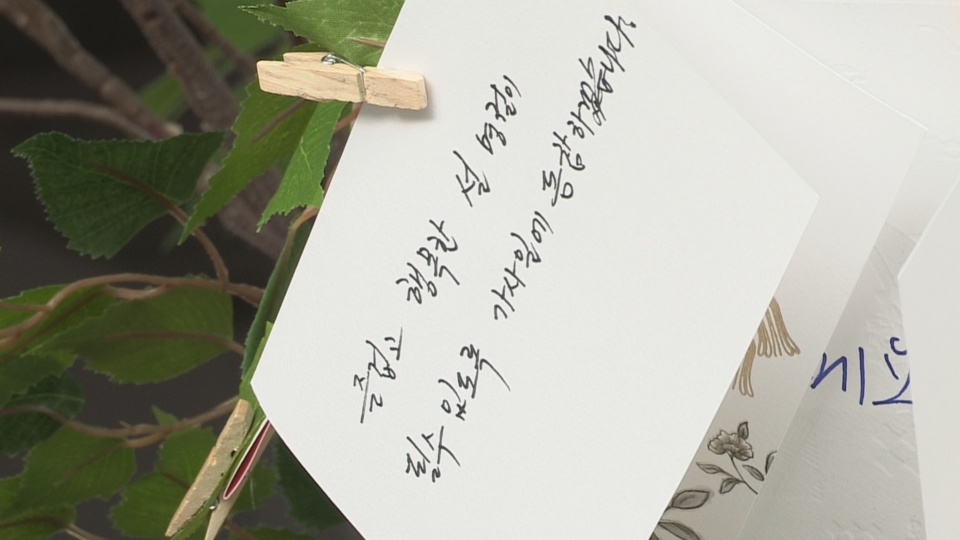 즐겁고 행복한 설 명절이
될수 있도록 가사일에 동참하겠습니다.